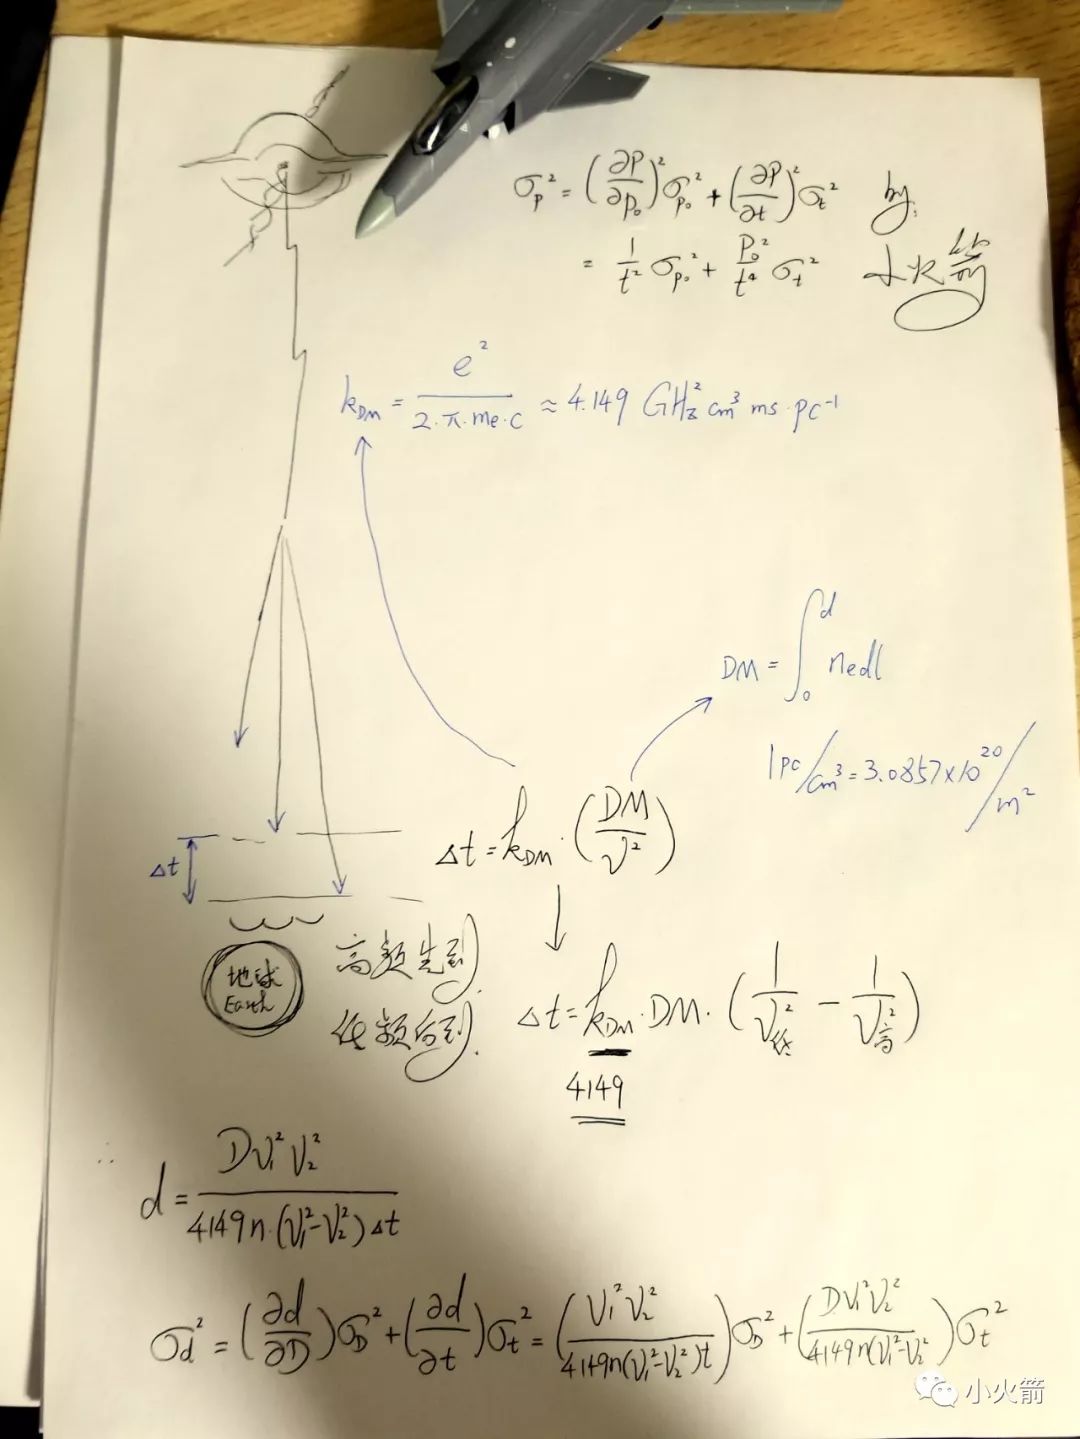 σ_p² = (∂P/∂P₀)² σ_p₀² + (∂P/∂t)² σ_t²
by:
= 1/t² σ_p₀² + P₀²/t⁴ σ_t²
小火箭
k_DM = e²/(2·π·me·c) ≈ 4.149 GHz² cm³ ms·pc⁻¹
DM = ∫₀ᵈ nedl
1pc/cm³ = 3.0857×10²⁰/m²
Δt = k_DM · (DM/ν²)
Δt
地球
Earth
高频先到
低频后到
Δt = k_DM · DM · (1/ν低² − 1/ν高²)
4149
d = Dν₁²ν₂²/(4149n·(ν₁²−ν₂²)Δt)
σ_d² = (∂d/∂D)σ_D² + (∂d/∂t)σ_t² = (ν₁²ν₂²/(4149n(ν₁²−ν₂²)t))σ_D² + (Dν₁²ν₂²/(4149n(ν₁²−ν₂²)))σ_t²
小火箭